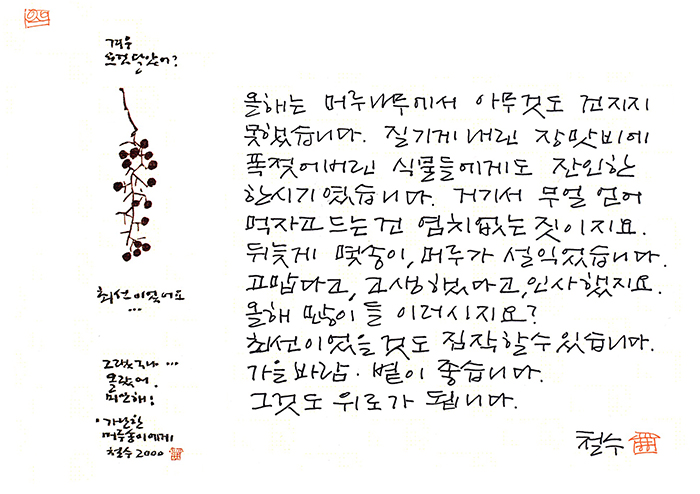 겨우
요것 달았어?
최선이었어요
...
그랬구나 ...
몰랐어.
미안해!
· 가난한
머루송이에게
철수 2000
올해는 머루나무에서 아무것도 건지지
못했습니다. 질기게 내린 장맛비에
폭 젖어버린 식물들에게도 잔인한
한시기였습니다. 거기서 무얼 얻어
먹자고 드는건 염치없는 짓이지요.
뒤늦게 몇송이, 머루가 설익었습니다.
고맙다고, 고생했다고, 인사했지요.
올해 많이들 이러시지요?
최선이었을 것도 짐작할수있습니다.
가을 바람· 볕이 좋습니다.
그것도 위로가 됩니다.
철수